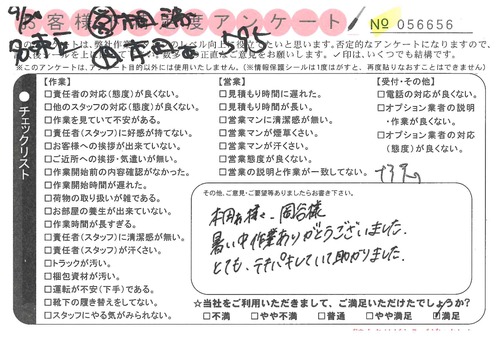 お客様満足度アンケート
No 056656
このアンケートは、弊社作業スタッフのレベル向上に役立てたいと思います。否定的なアンケートになりますので、
✓印は、いくつでも結構です。
※このアンケートは、アンケート目的以外には使用いたしません。(※情報保護シールは1度がすと、再度貼りなおすことはできません)
チェックリスト
【作業】
□責任者の対応(態度)が良くない。
□他のスタッフの対応(態度)が良くない。
□作業を見ていて不安がある。
□責任者(スタッフ)に好感が持てない。
□お客様への挨拶が出来ていない。
□ご近所への挨拶・気遣いが無い。
□作業開始前の内容確認がなかった。
□作業開始時間が遅れた。
□荷物の取り扱いが雑である。
□お部屋の養生が出来ていない。
□作業時間が長すぎる。
□責任者(スタッフ)に清潔感が無い。
□責任者(スタッフ)が汗くさい。
□トラックが汚い。
□梱包資材が汚い。
□運転が不安(下手)である。
□靴下の履き替えをしてない。
□スタッフにやる気がみられない。
【営業】
□見積もり時間に遅れた。
□見積もり時間が長い。
□営業マンに清潔感が無い。
□営業マンが煙草くさい。
□営業マンが汗くさい。
□営業態度が良くない。
□営業の説明と作業が一致してない。
【受付・その他】
□電話の対応が良くない。
□オプション業者の説明
・作業が良くない。
□オプション業者の対応
(態度)が良くない。
その他、ご意見・ご要望等ありましたらお書き下さい。
暑い中作業ありがとうございました。
とても、テキパキしていて助かりました。
☆当社をご利用いただきまして、ご満足いただけたでしょうか?
□不満 □やや不満 □普通 □やや満足 ☑満足